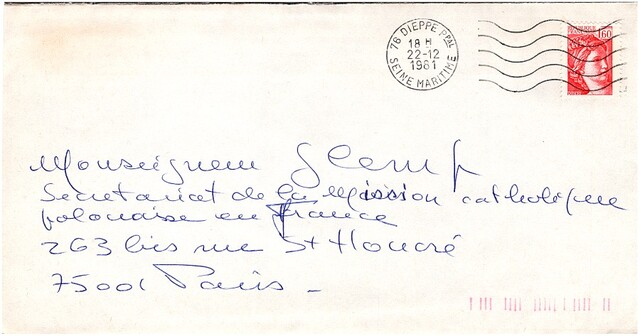 76 DIEPPE PPAL
18 H
22-12
1981
SEINE MARITIME
1,60
Monseigneur Glemp
Secretariat de la Mission catholique
polonaise en France
263 bis rue St Honoré
75001 Paris -